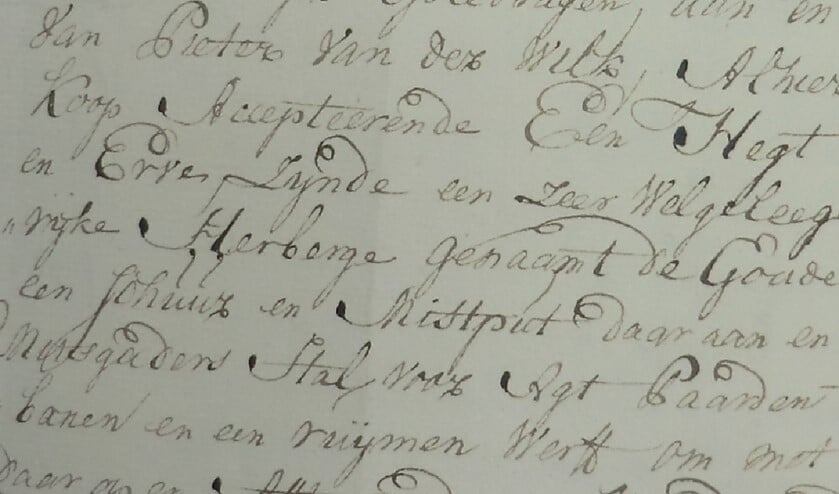 aan en
Van Pieter Van der Wilk, Alhier
Koop Accepteerende Een Hegt
en Erve, Zynde een zeer Welgeleeg
„rijke Herberge genaamt de Goude
een Schuur en Mistput daar aan en
Mitsgaders Stal voor Agt Paarden
banen en een ruijmen Werff om met
daar op en